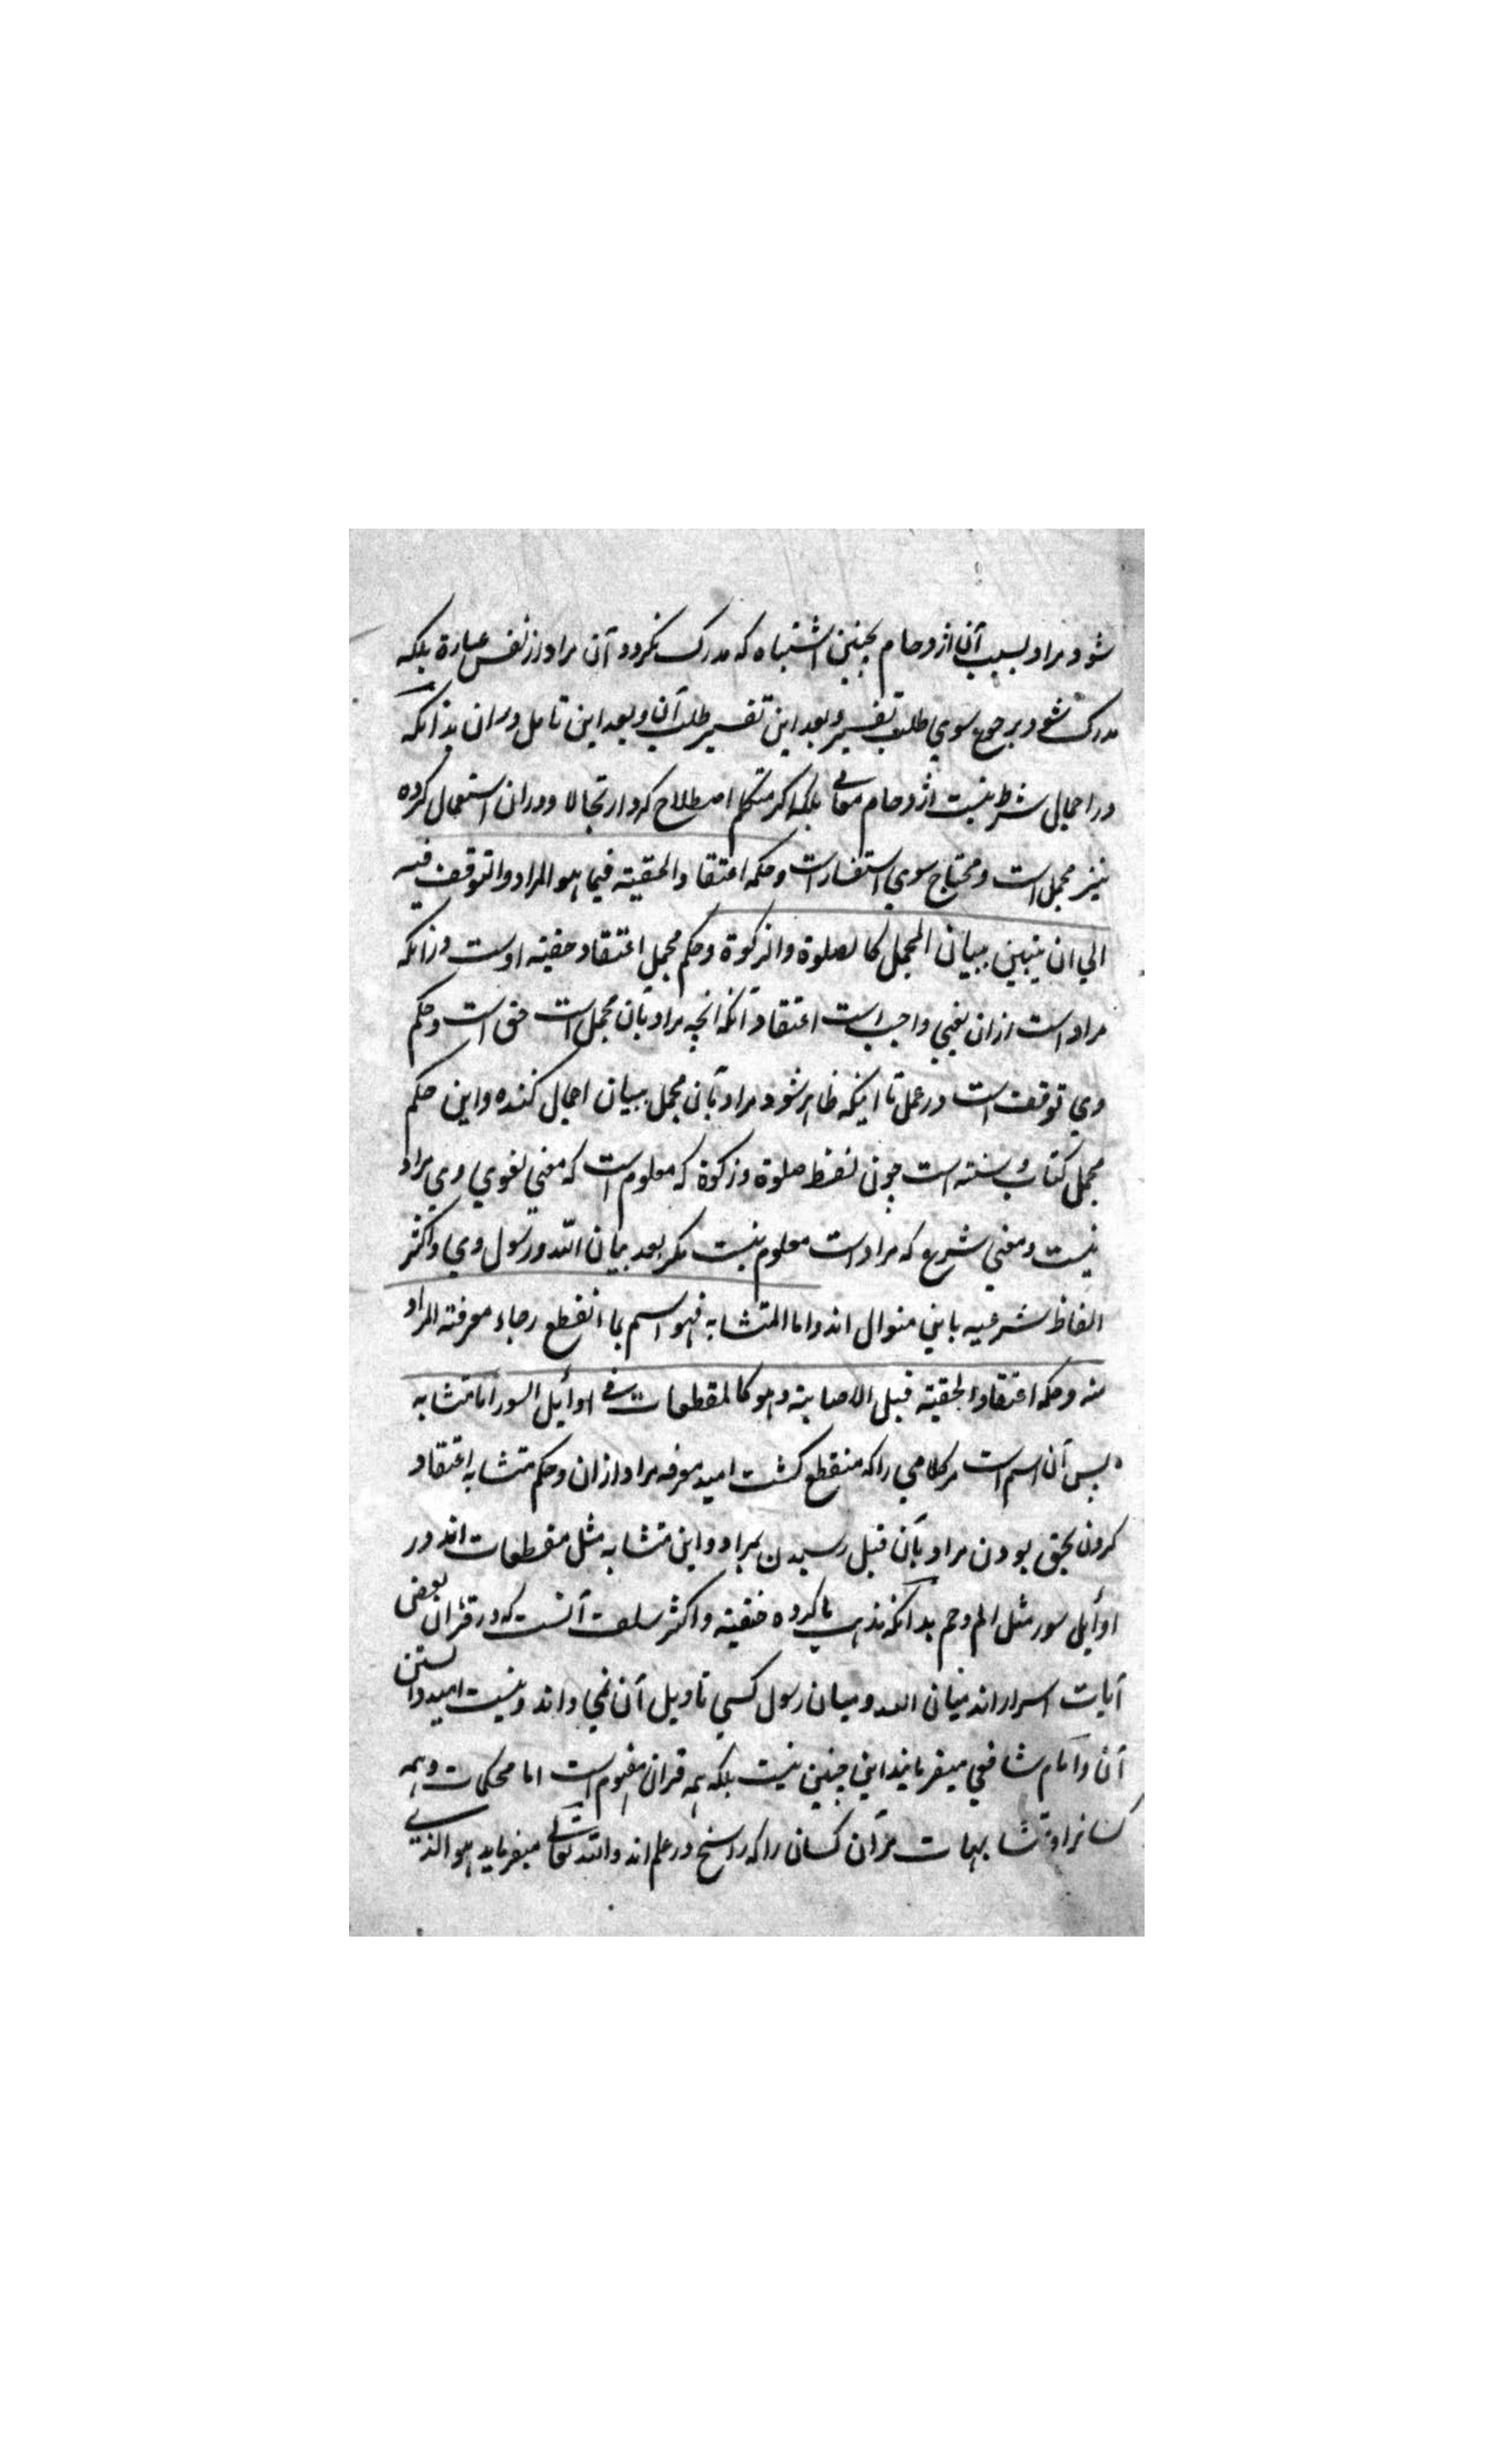 شود مراد بسبب آن ازدحام بچنین اشتباه که مدرک نکردد آن مراد از نفس عبارة بلکه
مدرک شود برجوع سوی طلب تفسیر و بعد این تفسیر طلب آن و بعد این تامل دران بدانکه
در اجمال شرط نیست ازدحام معانی بلکه اکر متکلم اصطلاح کرد ارتجالا و دران استعمال کرده
نیز مجمل است و محتاج سوی استفسار است و حکمه اعتقاد الحقیة فیما هو المراد والتوقف فیه
الی ان یتبین ببیان المجمل کالصلوة والزکوة و حکم مجمل اعتقاد حقیة اوست وزانکه
مراد است ازان یعنی واجب است اعتقاد آنکه انچه مراد بآن مجمل است حق است و حکم
وی توقف است در عمل تا اینکه ظاهر شود مراد بآن مجمل ببیان اجمال کننده و این حکم
مجمل کتاب و سنة است چون لفظ صلوة و زکوة که معلوم است که معنی لغوی وی مراد
نیست و معنی شرع که مراد است معلوم نیست مکر بعد بیان الله و رسول وی و اکثر
الفاظ شرعیه باین منوال اند واما المتشابه فهو اسم بما انقطع رجاء معرفة المراد
منه و حکمه اعتقاد الحقیة قبل الاصابة و هو کالمقطعات فی اوائل السور اما متشابه
پس آن اسم است مر کلامی را که منقطع کشت امید معرفه مراد ازان و حکم متشابه اعتقاد
کردن بحق بودن مراد بآن قبل رسیدن بمراد و این متشابه مثل مقطعات اند در
اوائل سور مثل الم و حم بدانکه مذهب ما کرده حنفیه و اکثر سلف آنست که در قرآن بعضی
آیات اسرار اند میان الله و میان رسول کسی تاویل آن نمی داند و نیست امید دانستن
آن و امام شافعی میفرمایند این چنین نیست بلکه همه قران مفهوم است اما محکمات همه
کسانرا و متشابهات مر آن کسان را که راسخ در علم اند والله تعالی میفرماید هو الذی